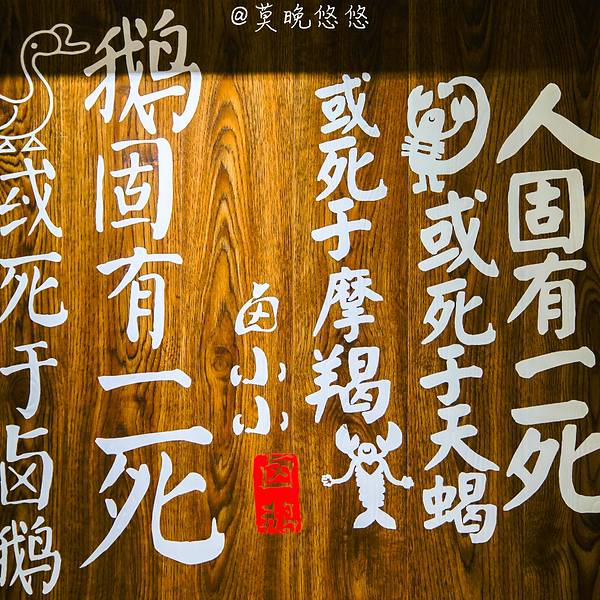 @莫晚悠悠
人固有一死
或死于天蝎
或死于摩羯
卤小小
鹅固有一死
或死于卤鹅